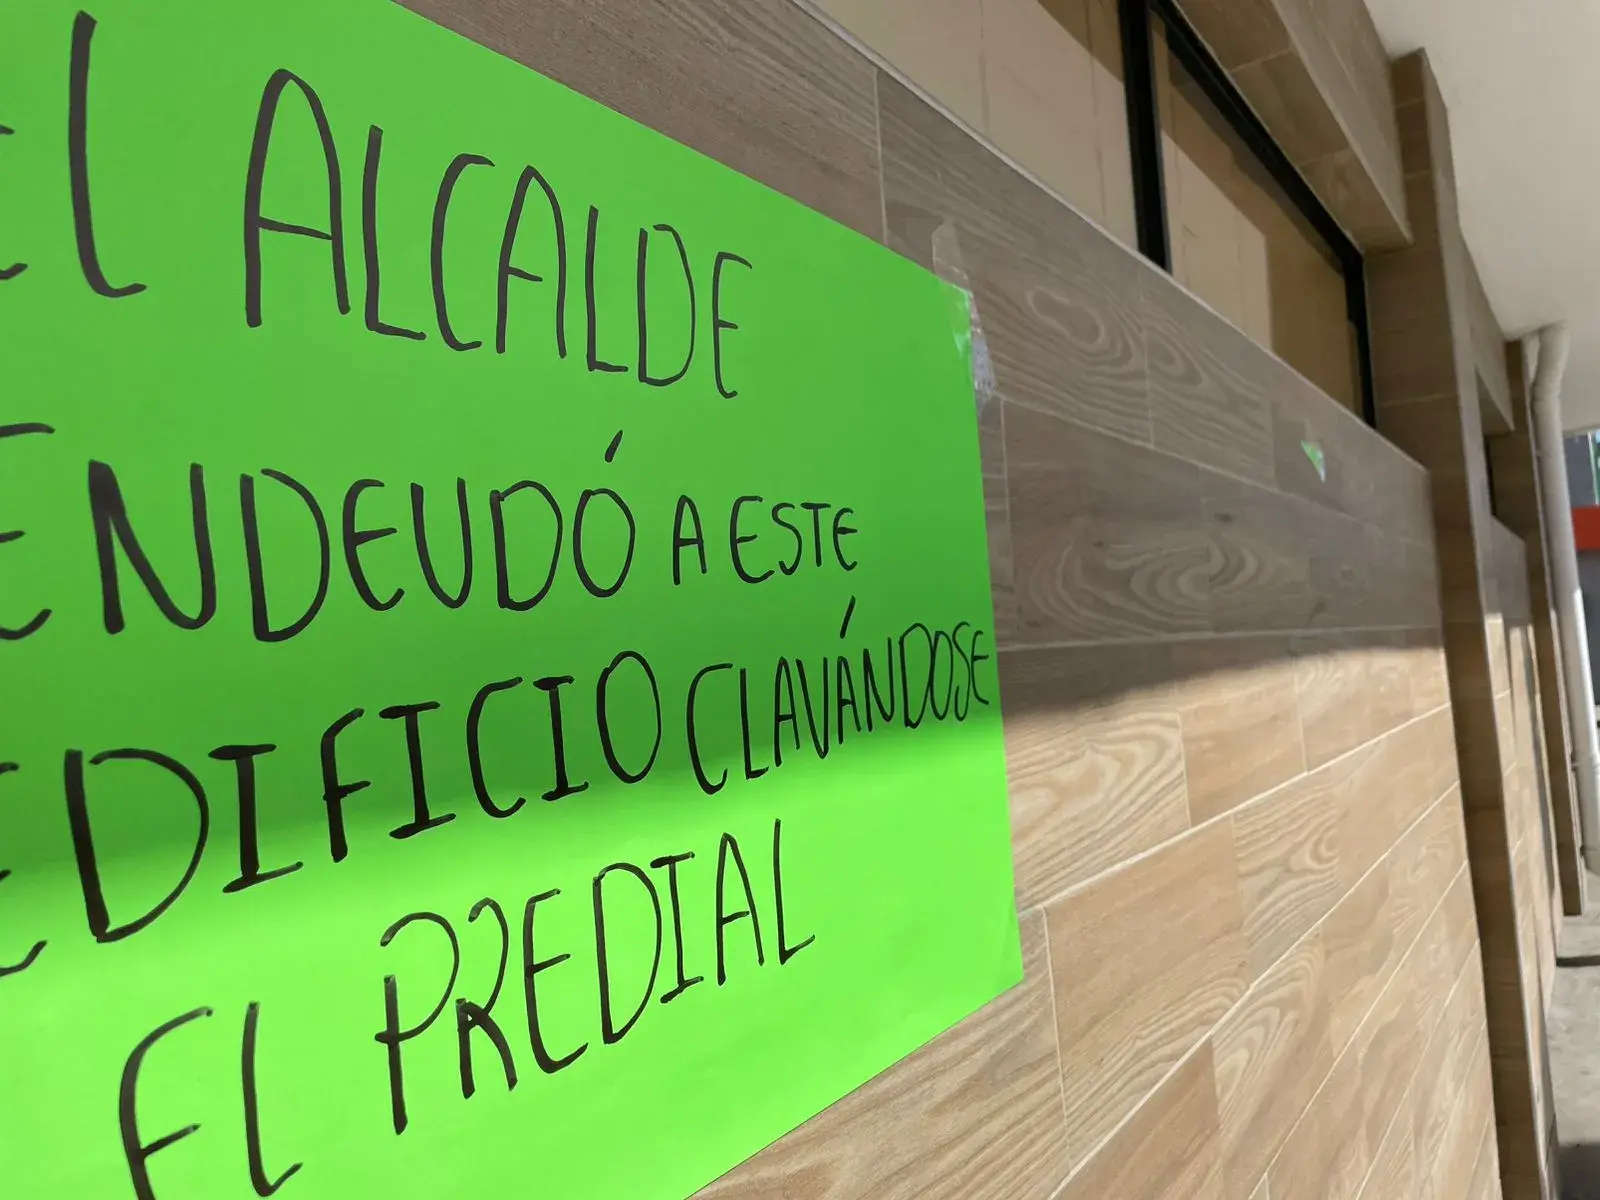 EL ALCALDE
ENDEUDÓ A ESTE
EDIFICIO CLAVÁNDOSE
EL PREDIAL